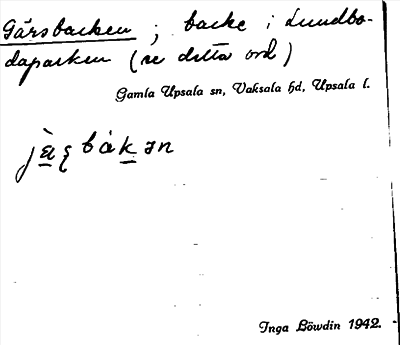 Gärsbacken ; backe i Lundbo-
daparken (se detta ord)
Gamla Upsala sn, Vaksala hd, Upsala l.
Inga Löwdin 1942.